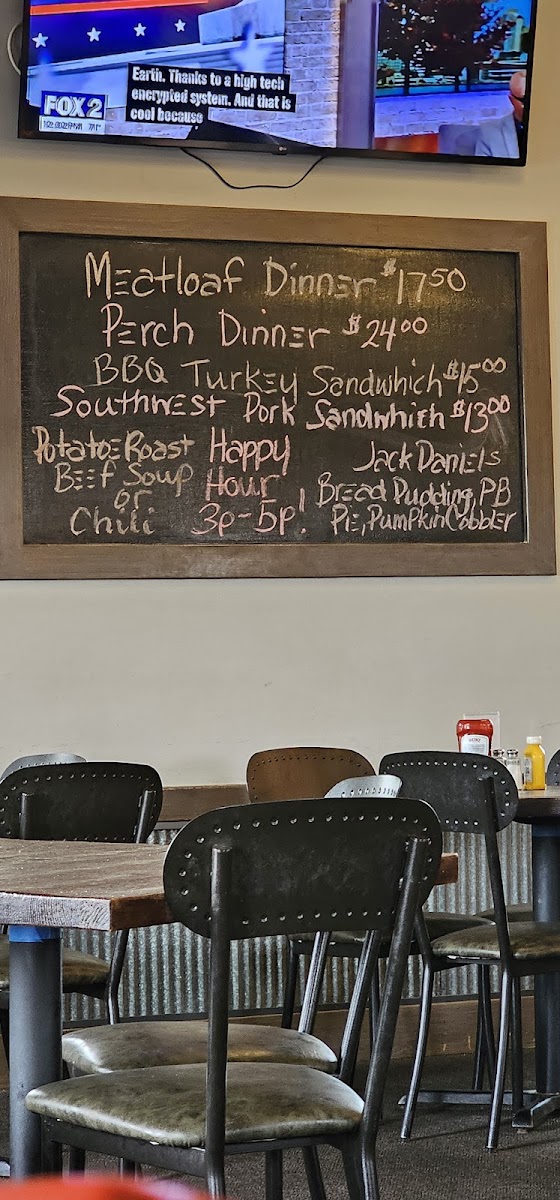 Earth. Thanks to a high tech
encrypted system. And that is
cool because
FOX 2
Meatloaf Dinner $17.50
Perch Dinner $24.00
BBQ Turkey Sandwhich $15.00
Southwest Pork Sandwhich $13.00
Potatoe Roast
Beef Soup
or
Chili
Happy
Hour
3p-5p!
Jack Daniels
Bread Pudding, PB
Pie, Pumpkin Cobbler
HEINZ